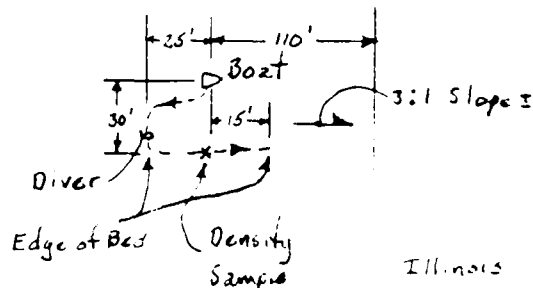 25'
110'
Boat
3:1 Slope ±
30'
15'
Diver
Edge of Bed
Density
Sample
Illinois